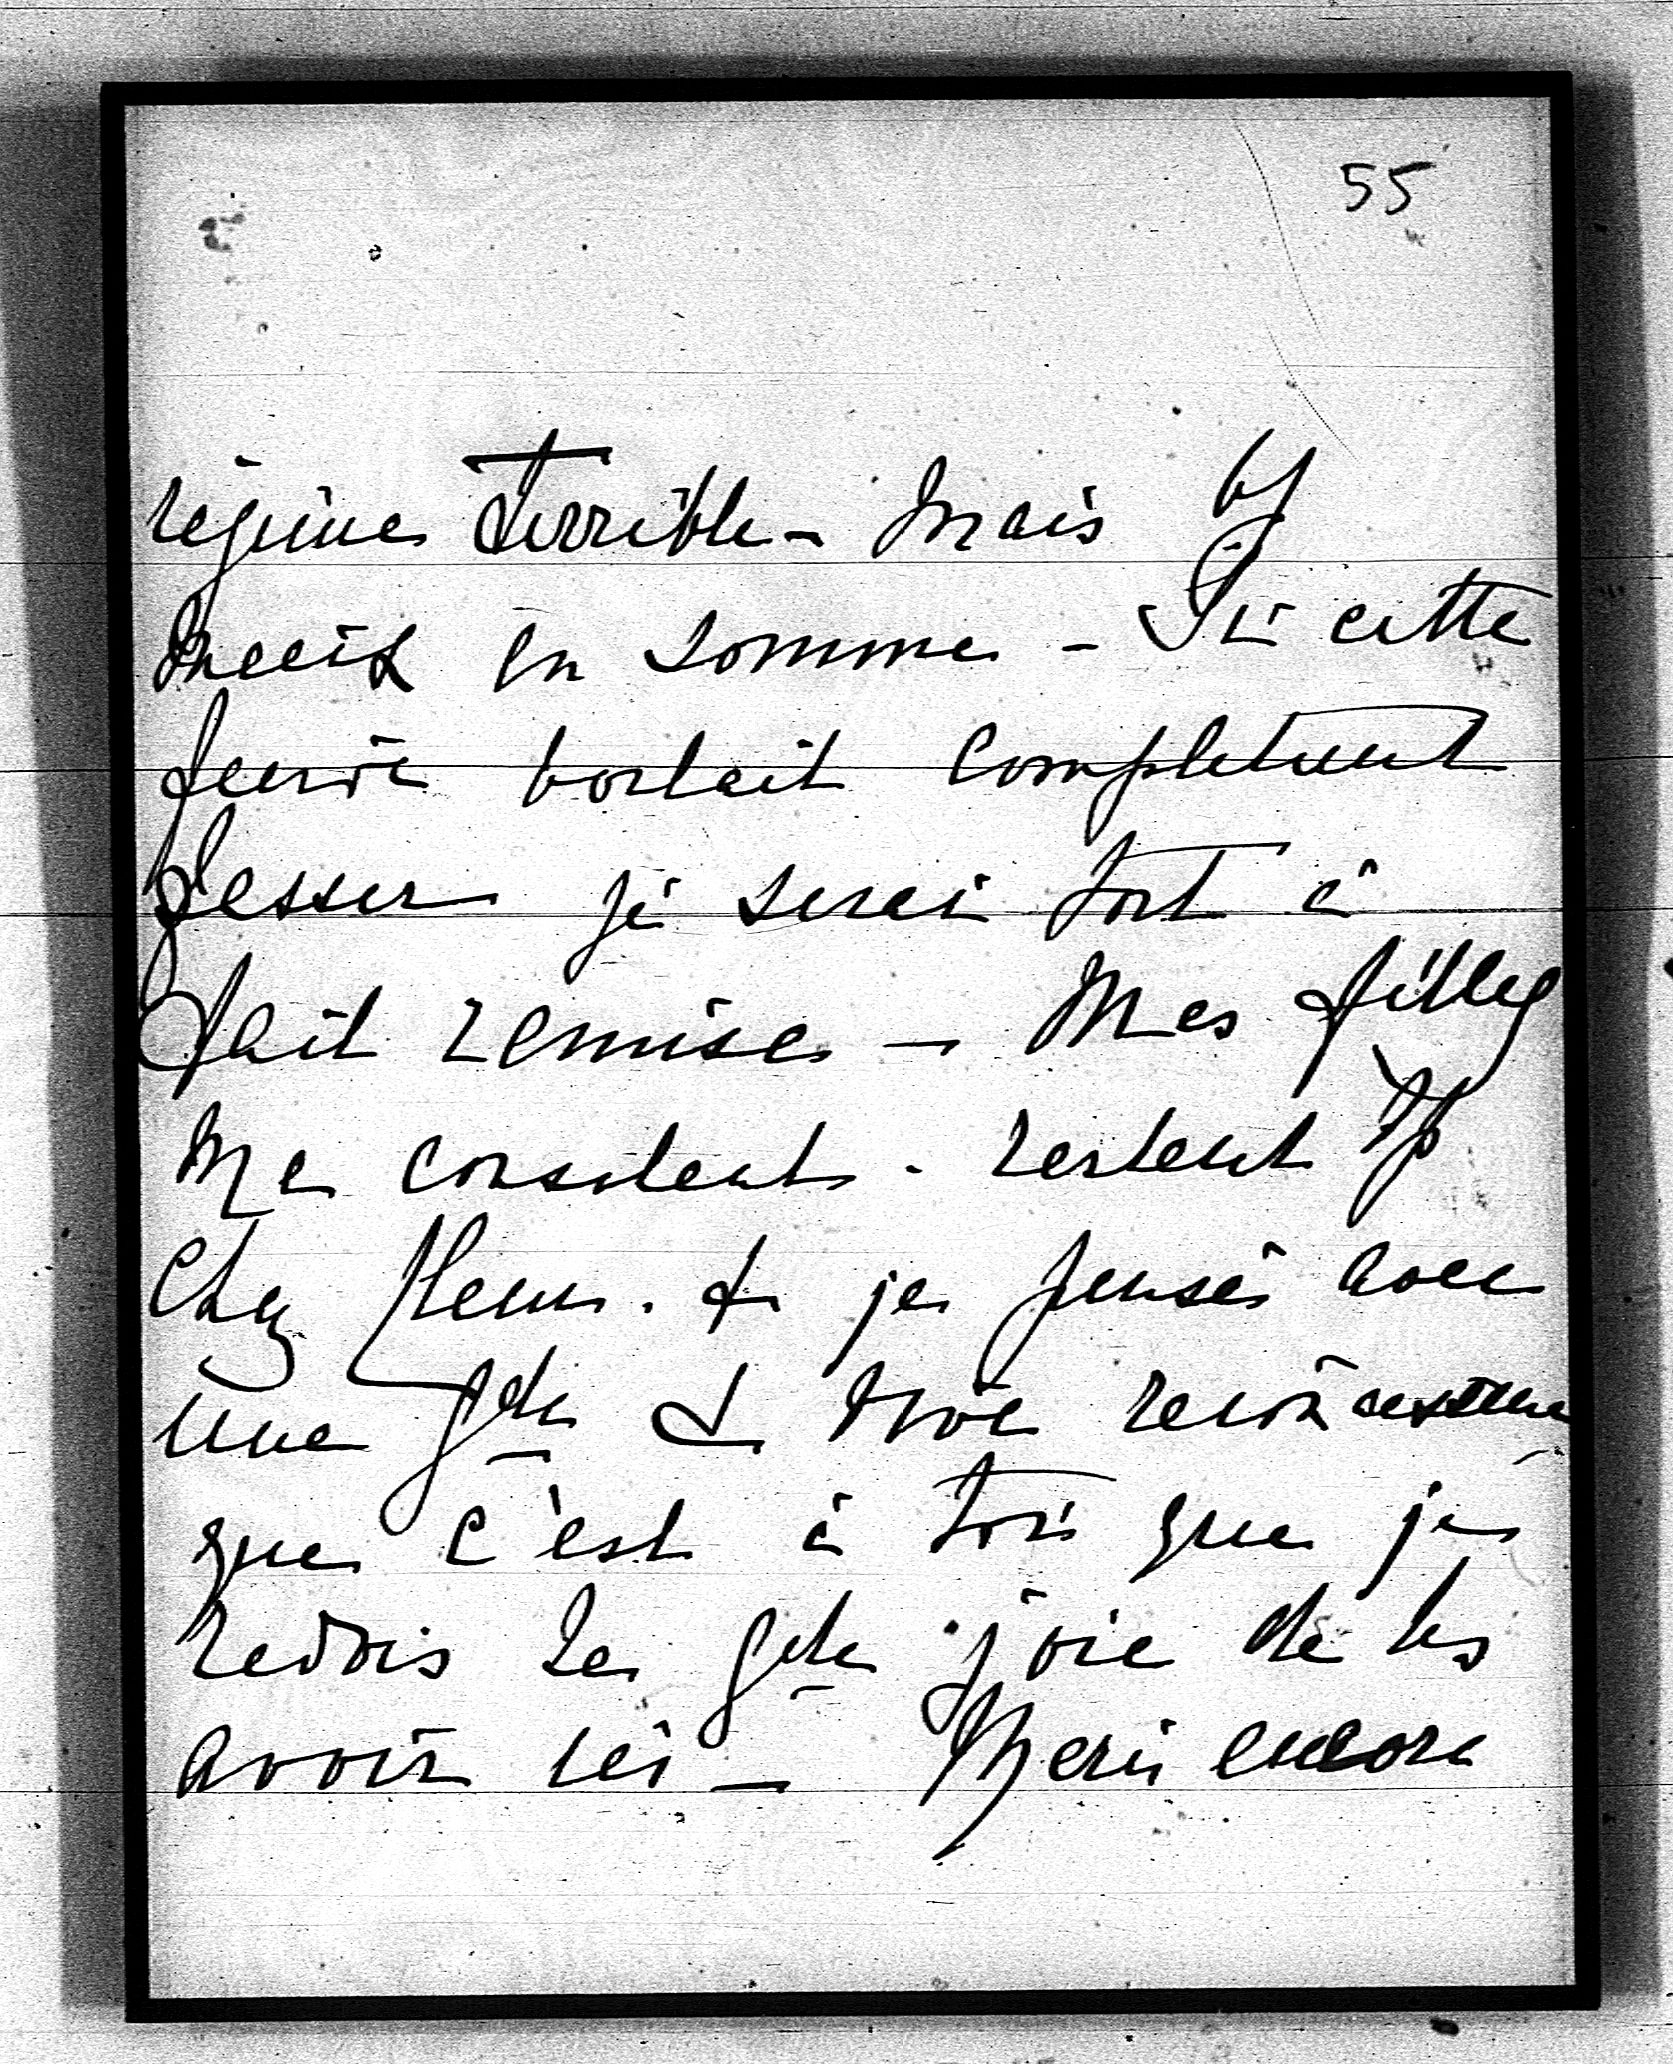 55
régime terrible - Mais bf
mieux en somme - Si cette
fievre voulait completement
cesser je serai tout à
fait remise - Mes filles
me consolent. restent
chez Mem. & je pense avec
une gde & vive reconce
que c'est à toi que je
redois la gde joie de les
avoir ici - Merci encore